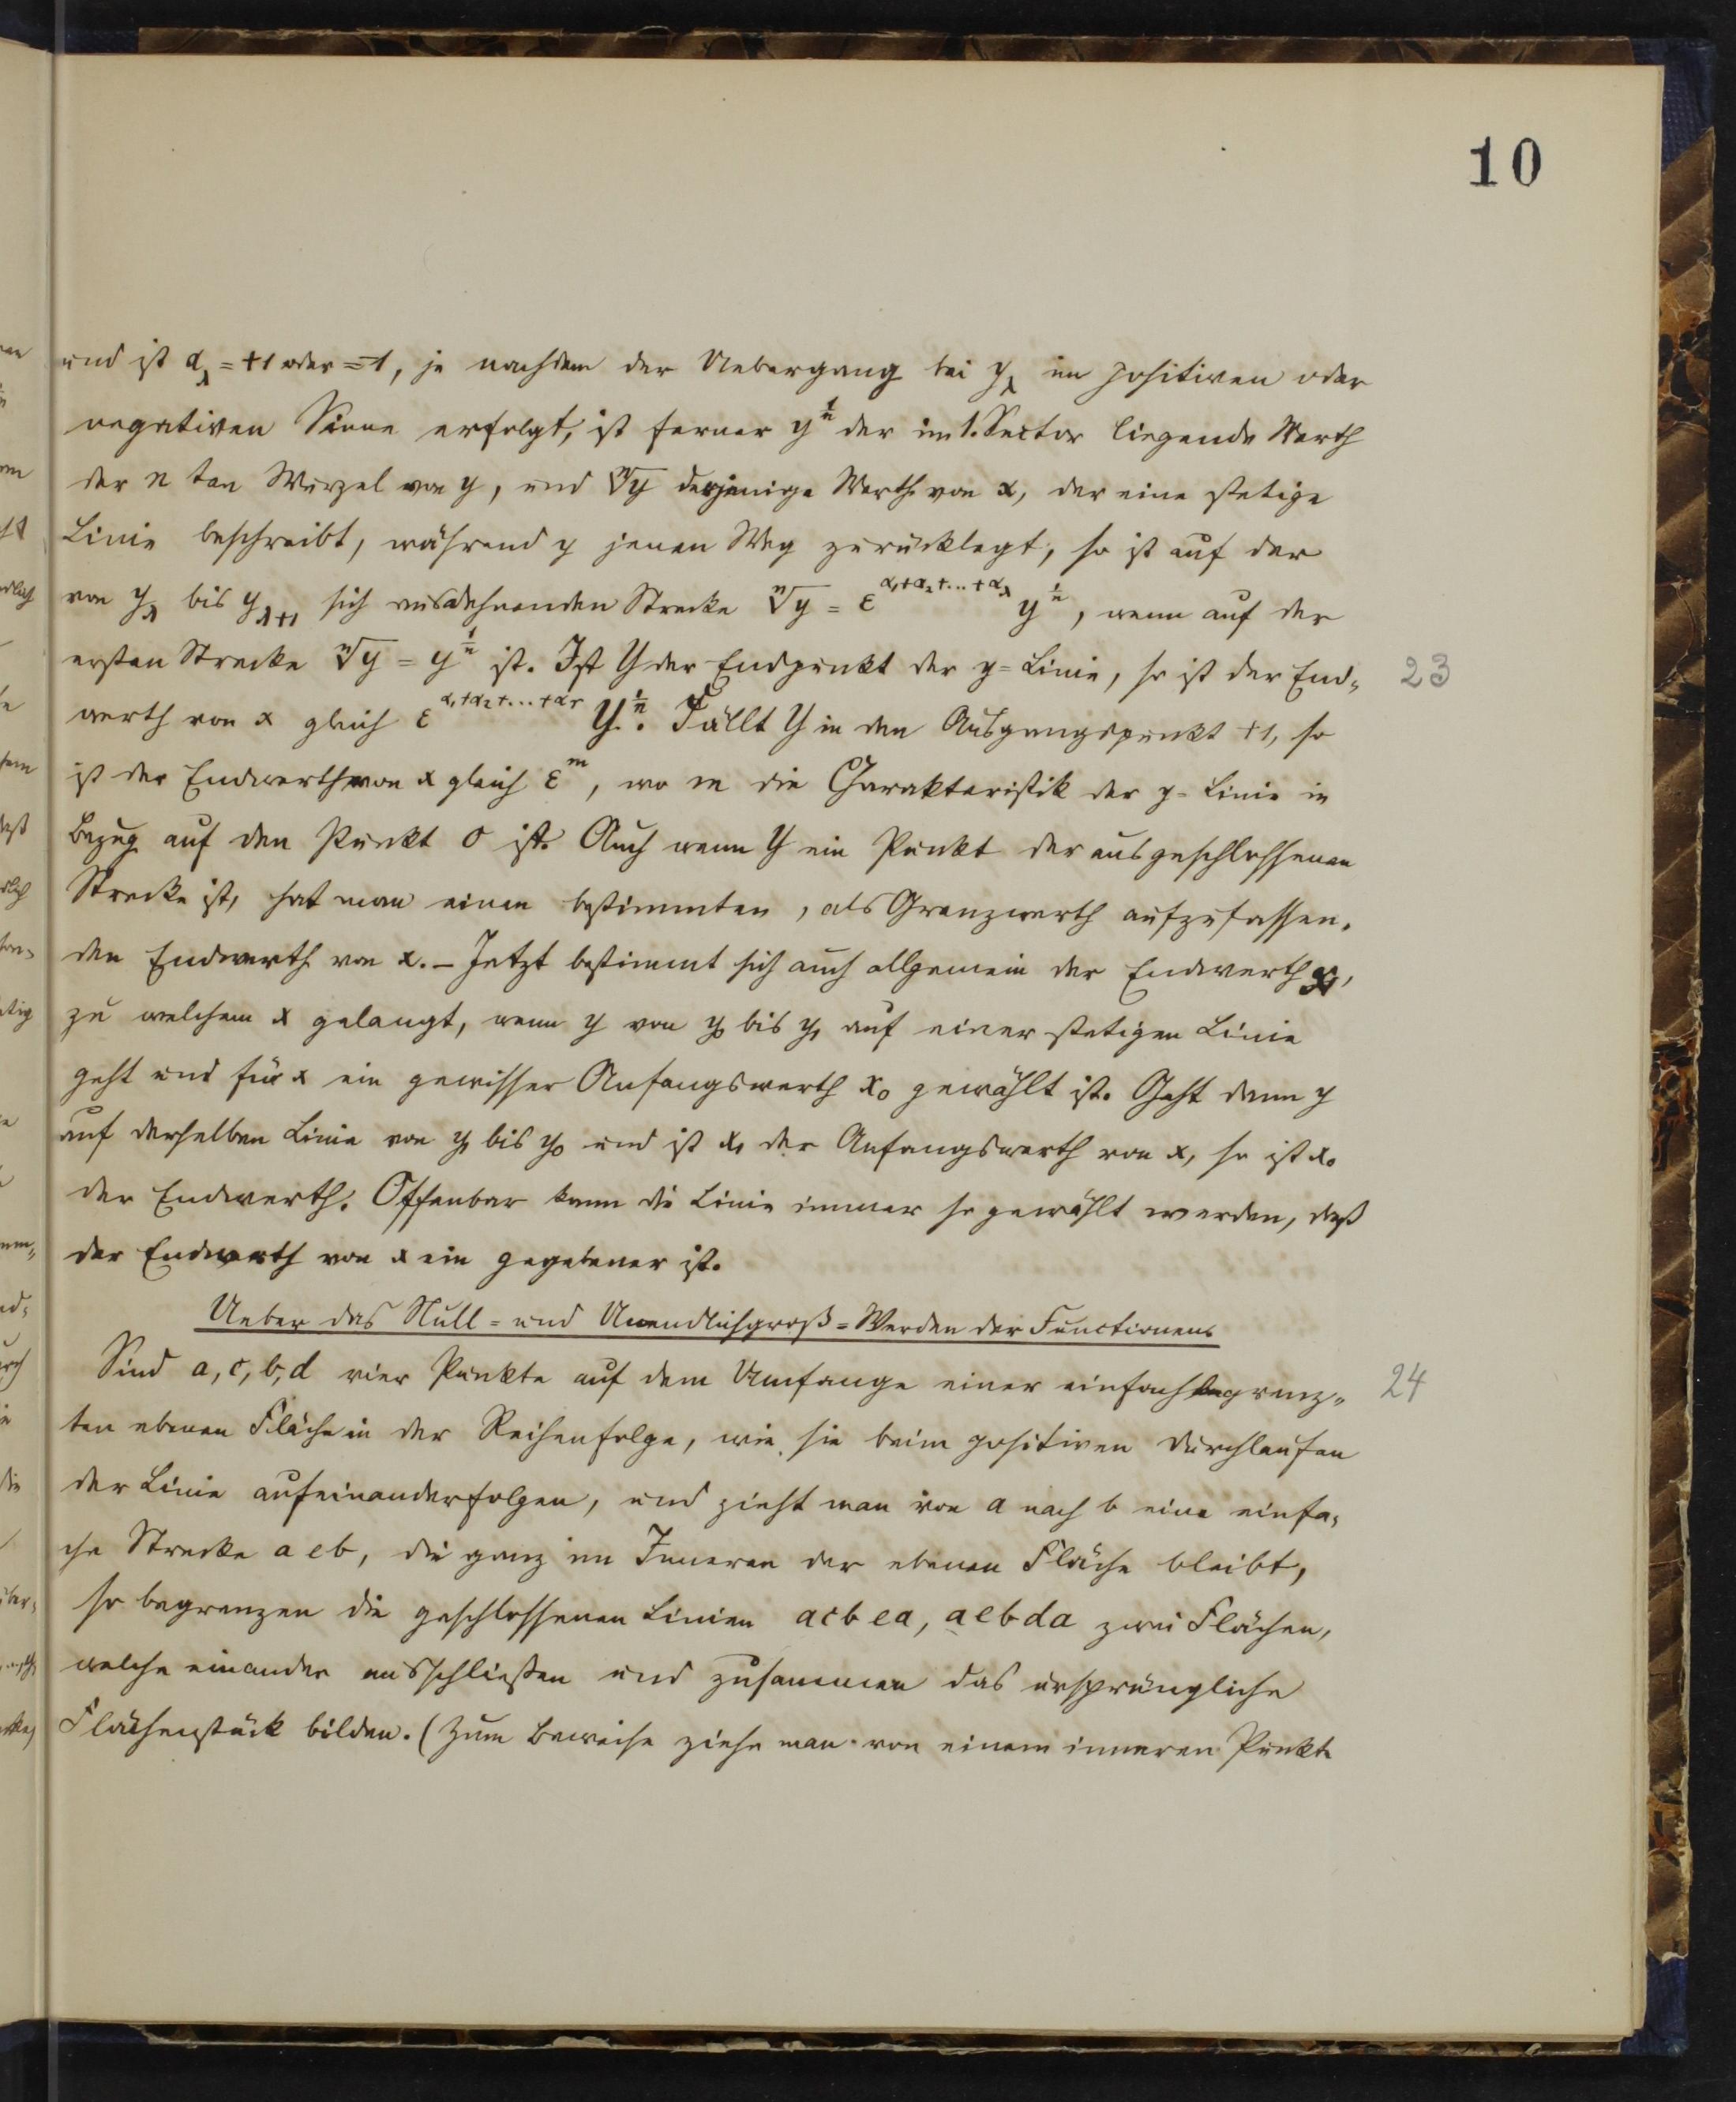 10
und ist α_λ = +1 oder = -1, je nachdem der Uebergang bei y_λ im positiven oder
negativen Sinne erfolgt, ist ferner y^{1/n} der im 1. Sector liegende Werth
der n ten Wurzel von y, und ⁿ√y derjenige Werth von x, der eine stetige
Linie beschreibt, während y jenen Weg zurücklegt, so ist auf der
von y_λ bis y_{λ+1} sich ausdehnenden Strecke ⁿ√y = ε^{α₁+α₂+...+α_λ} y^{1/n}, wenn auf der
ersten Strecke ⁿ√y = y^{1/n} ist. Ist Y der Endpunkt der y-Linie, so ist der End- 23
werth von x gleich ε^{α₁+α₂+...+α_r} Y^{1/n}. Fällt Y in den Ausgangspunkt +1, so
ist der Endwerth von x gleich ε^m, wo m die Charakteristik der y-Linie in
Bezug auf den Punkt 0 ist. Auch wenn Y ein Punkt der ausgeschlossenen
Strecke ist, hat man einen bestimmten, als Grenzwerth aufzufassen-
den Endwerth von x. – Jetzt bestimmt sich auch allgemein der Endwerth x₁,
zu welchem x gelangt, wenn y von y₀ bis y₁ auf einer stetigen Linie
geht und für x ein gewisser Anfangswerth x₀ gewählt ist. Geht dann y
auf derselben Linie von y₁ bis y₀ und ist x₁ der Anfangswerth von x, so ist x₀
der Endwerth. Offenbar kann die Linie immer so gewählt werden, daß
der Endwerth von x ein gegebener ist.
Ueber das Null- und Unendlichgroß-Werden der Functionen.
Sind a, c, b, d vier Punkte auf dem Umfange einer einfach begrenz- 24
ten ebenen Fläche in der Reihenfolge, wie sie beim positiven Durchlaufen
der Linie aufeinanderfolgen, und zieht man von a nach b eine einfa-
che Strecke aeb, die ganz im Inneren der ebenen Fläche bleibt,
so begrenzen die geschlossenen Linien acbea, aebda zwei Flächen,
welche einander ausschließen und zusammen das ursprüngliche
Flächenstück bilden. (Zum Beweise ziehe man von einem inneren Punkte